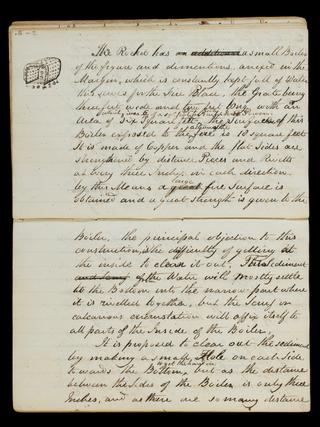 The Rocket has an additional a small Boiler
of the figure and dimentions, anexed in the
Margin, which is constantly kept full of Water
this serves for the Fire Place, the Grate being
three feet wide and two feet long with an
Area of Six Square feet, the Surface of this
Boiler exposed to the fire is 18 square feet
It is made of Copper and the flat Sides are
strengthened by distance Pieces and Rivetts
at every three Inches in each direction.
large
by this Means a great fire Surface is
obtained and a Great Strength is given to the
Boiler, the principal objection to this
construction, is the difficulty of getting at
the inside to clean it out. The Sediment
of the Water will mostly settle
to the Bottom into the narrow part where
it is rivetted together, but the Scurf or
calcarious incrustation will affix itself to
all parts of the Inside of the Boiler.
It is proposed to clean out the sediment
by making a small Hole on each Side
towards the Bottom, but as the distance
between the Sides of the Boiler is only three
Inches, and as there are so many distance